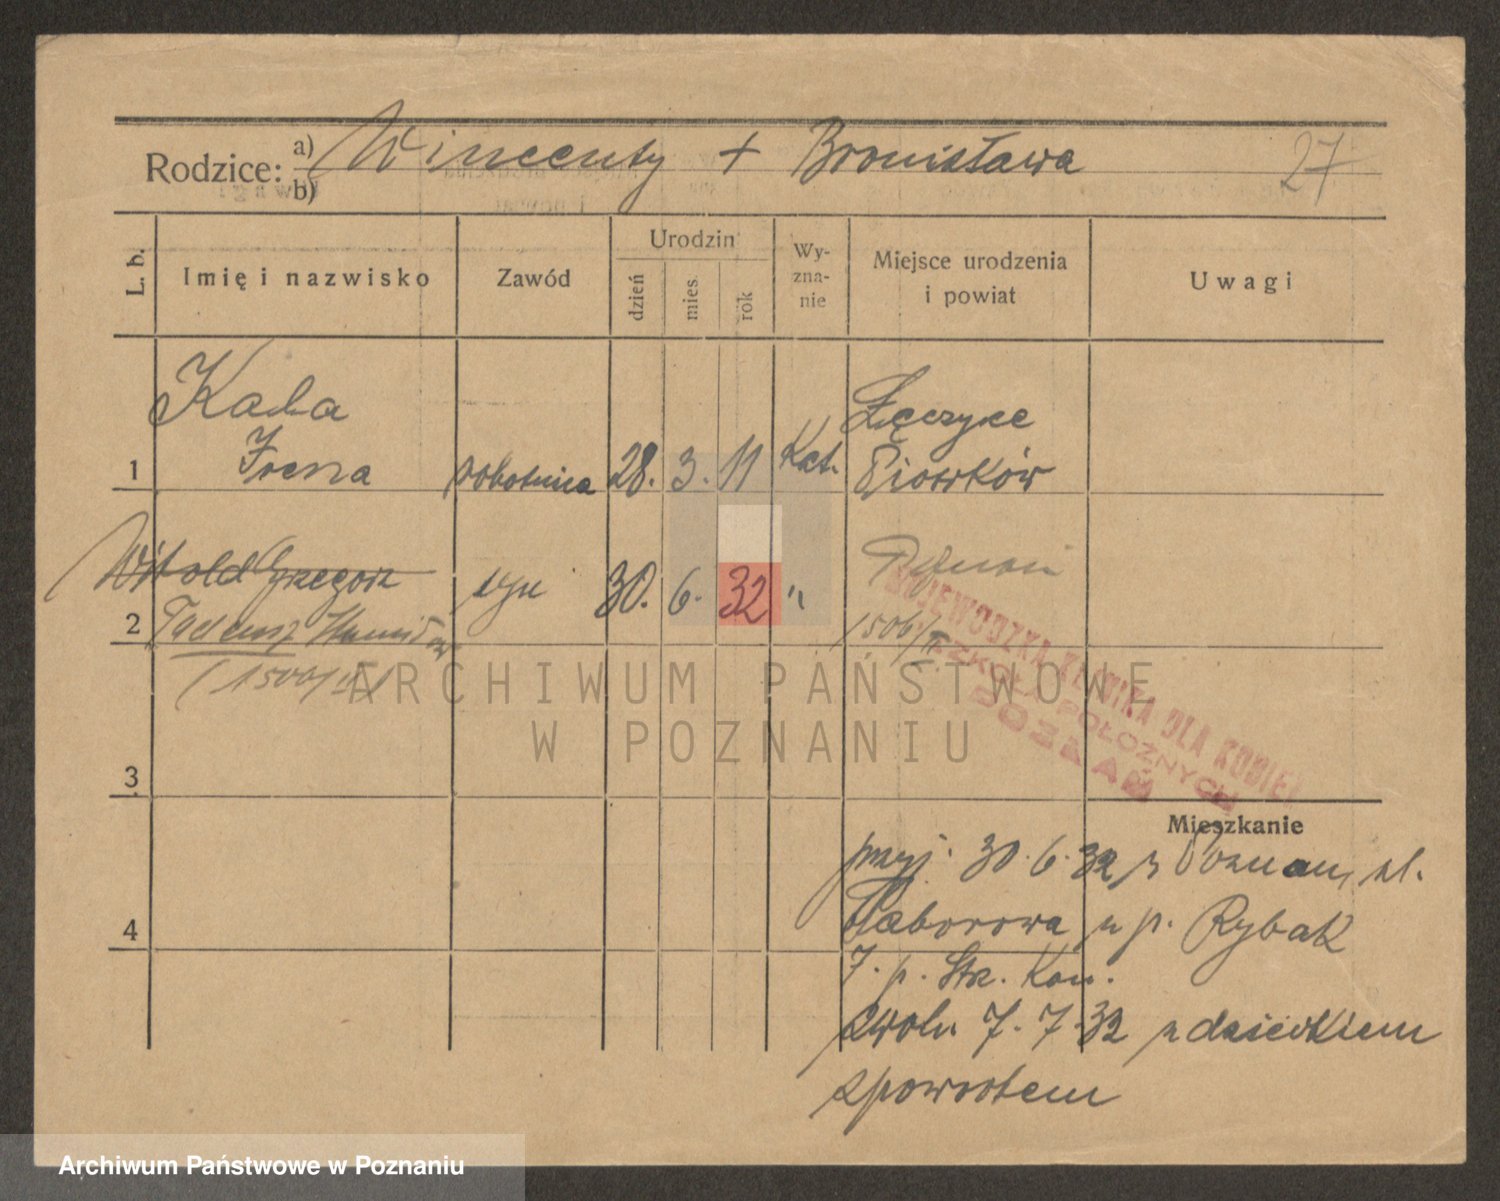 Rodzice: a) Wincenty + Bronisława 27
b)
L. b. Imię i nazwisko Zawód Urodzin dzień mies. rok Wy-zna-nie Miejsce urodzenia i powiat Uwagi
Kala Łęczyce
1 Irena robotnica 28. 3. 11 Kat. Piotrków
Witold Grzegorz syn 30. 6. 32 " Poznań
2 Tadeusz 1506/
ARCHIWUM PAŃSTWOWE
W POZNANIU
WOJEWÓDZKA KLINIKA DLA KOBIET
SZKOŁA POŁOŻNYCH
POZNAŃ
3
Mieszkanie
przyj. 30. 6. 32 z Poznania, ul.
4 Taborowa u p. Rybak
7. p. Str. Kon.
zwoln. 7. 7. 32 z dzieckiem
zpowrotem
Archiwum Państwowe w Poznaniu